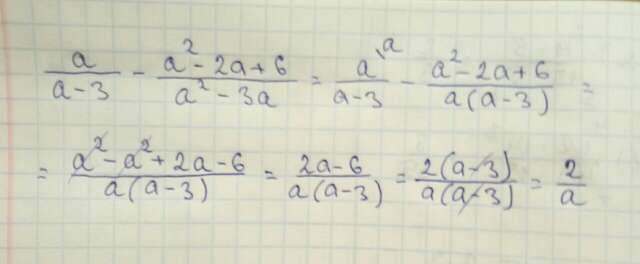 a/(a-3) - (a²-2a+6)/(a²-3a) = a\ᵃ/(a-3) - (a²-2a+6)/(a(a-3)) =
= (a²-a²+2a-6)/(a(a-3)) = (2a-6)/(a(a-3)) = 2(a-3)/(a(a-3)) = 2/a